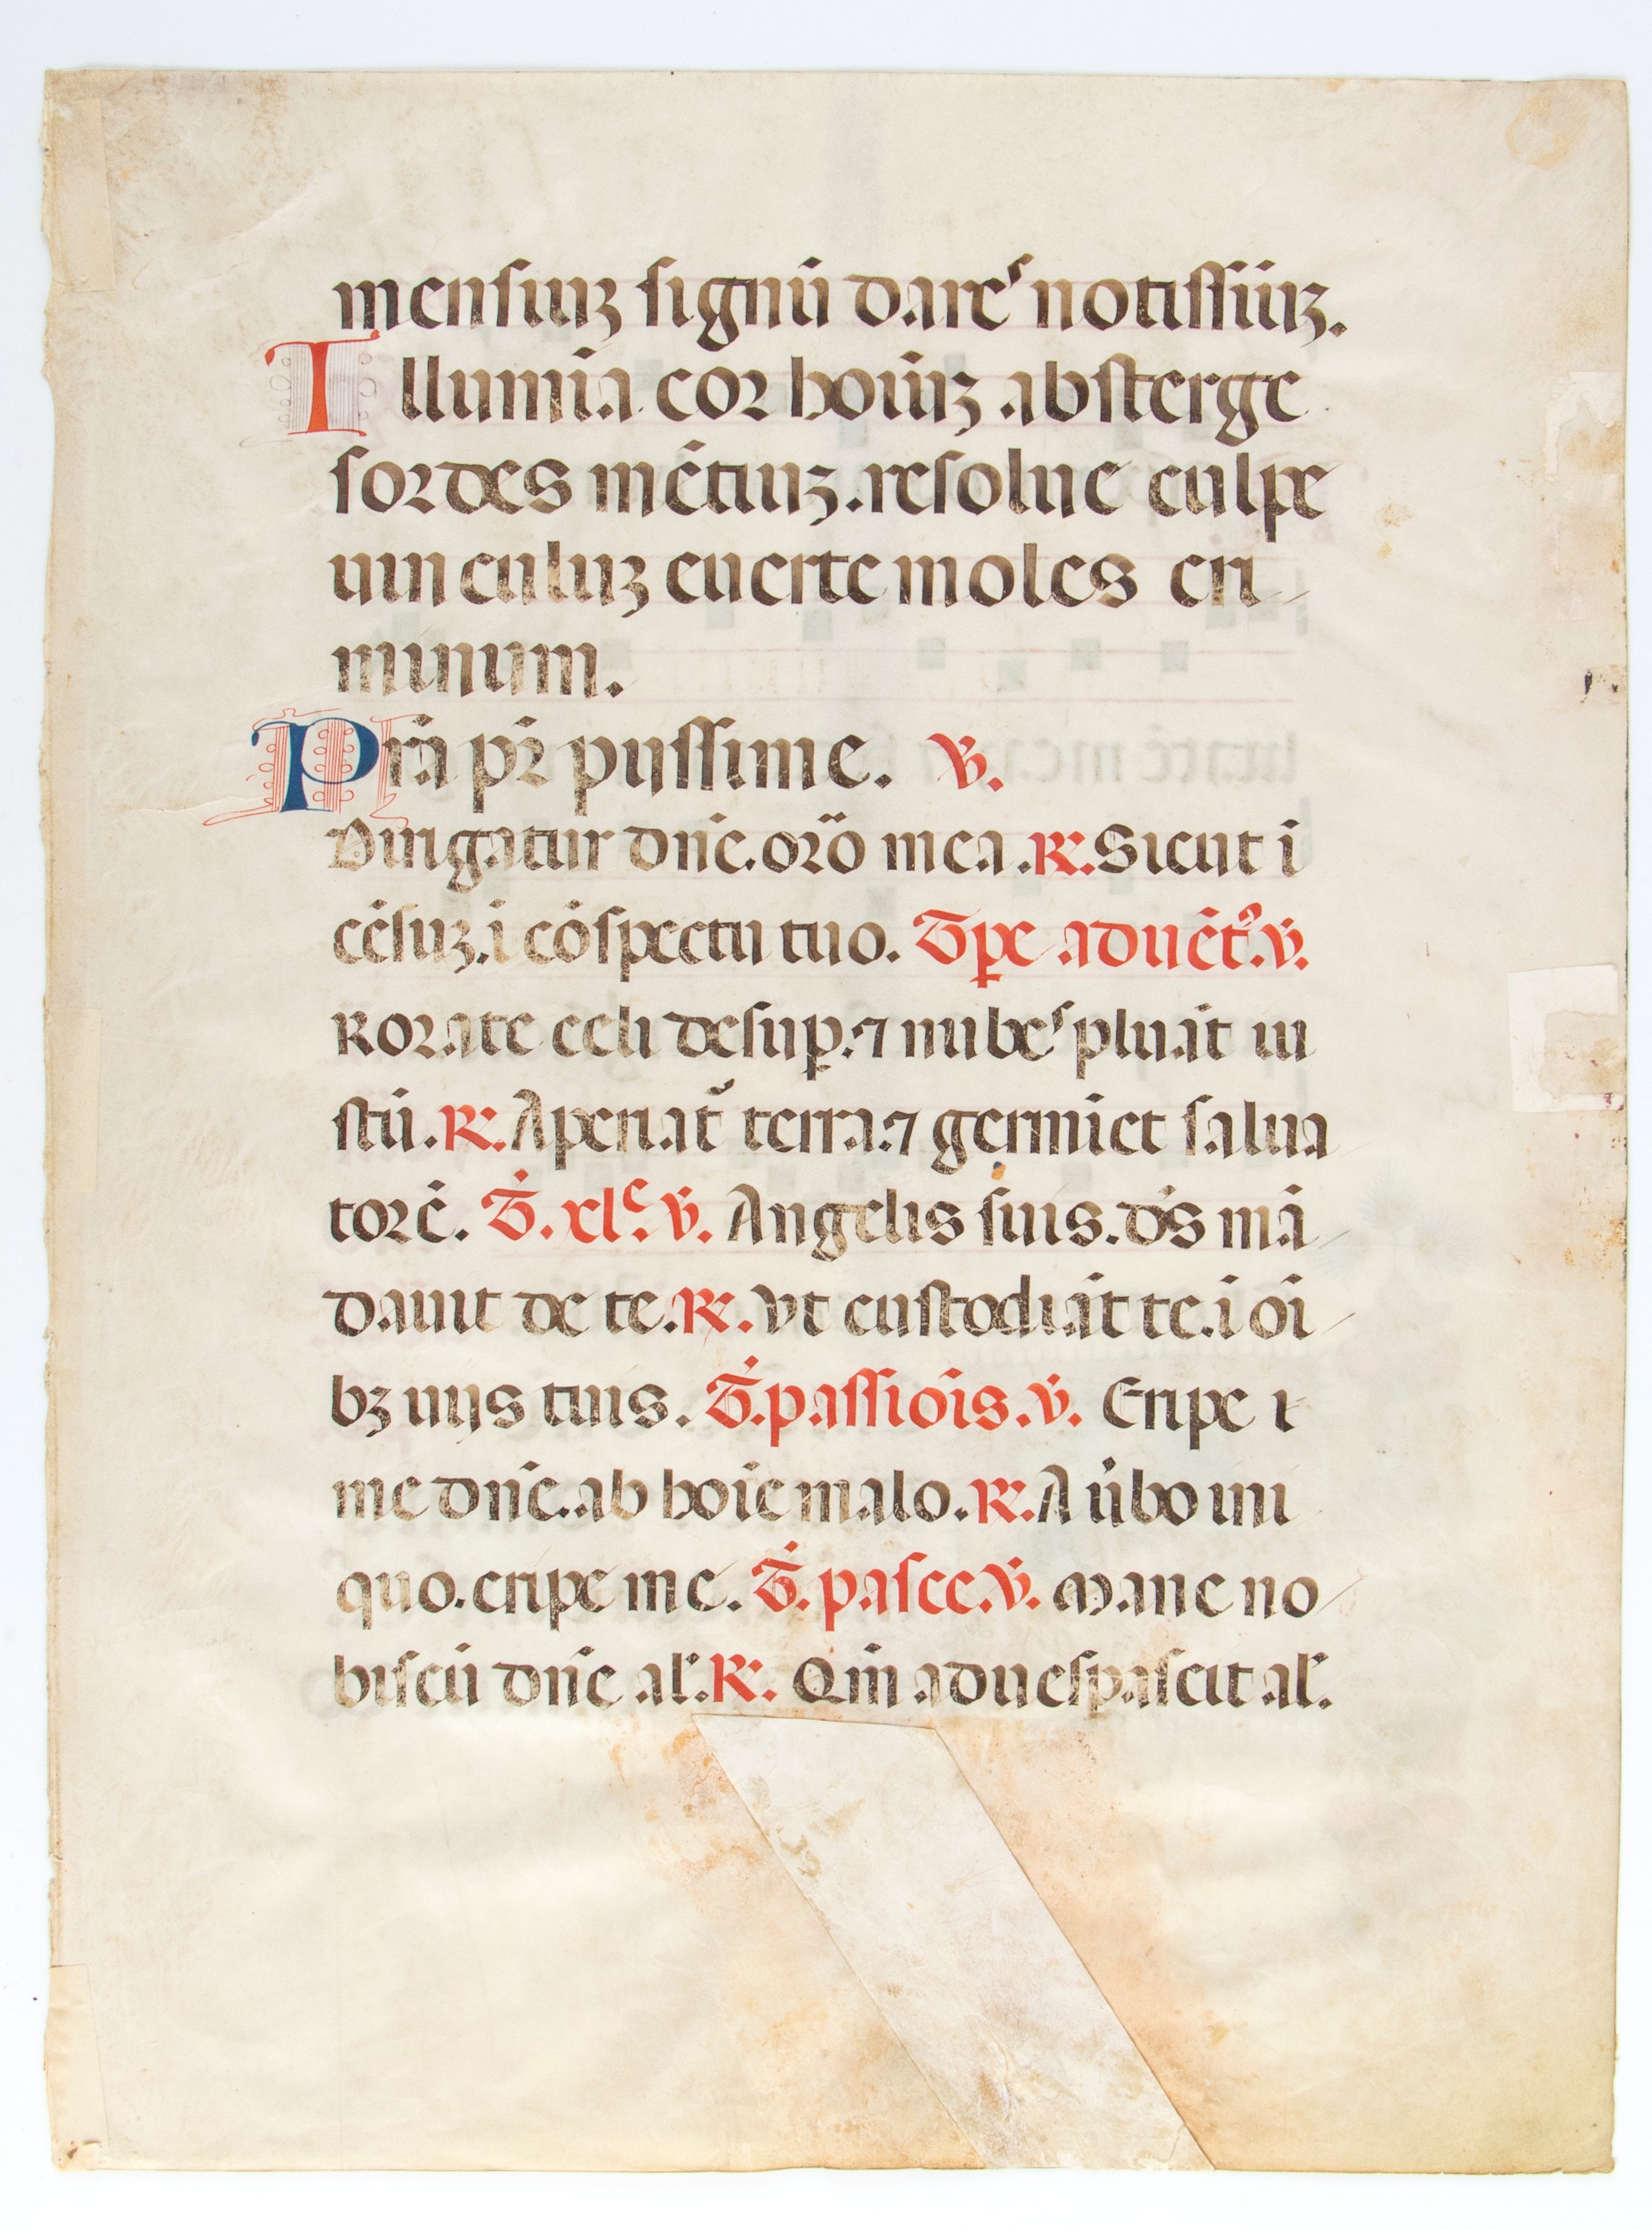 mensiuʒ signū dareˢ notissiūʒ.
Illumīa cor hoīūʒ absterge
sordes mētiuʒ. resolue culpe
uinculuʒ euerte moles cri
minum.
Prā pr̄ pijssime. ℣.
Dirigatur dn̄e. orō mea. ℟. Sicut ī
cēsuʒ. ī cōspectu tuo. Tp̄e aduēt᷒. ℣.
Rorate celi desuꝑ. ⁊ nubeˢ pluāt iu
stū. ℟. Aperiat᷑ terra. ⁊ germīet salua
torē. T̄. xlᵉ. ℣. Angelis suis. ds̄ mā
dauit de te. ℟. Vt custodiāt te. ī oī
bʒ uijs tuis. T̄. passiōis. ℣. Eripe
me dn̄e. ab hoīe malo. ℟. A ūbo ini
quo. eripe me. T̄. pasce. ℣. Mane no
biscū dn̄e al̄. ℟. Qm̄ aduespascit al̄.